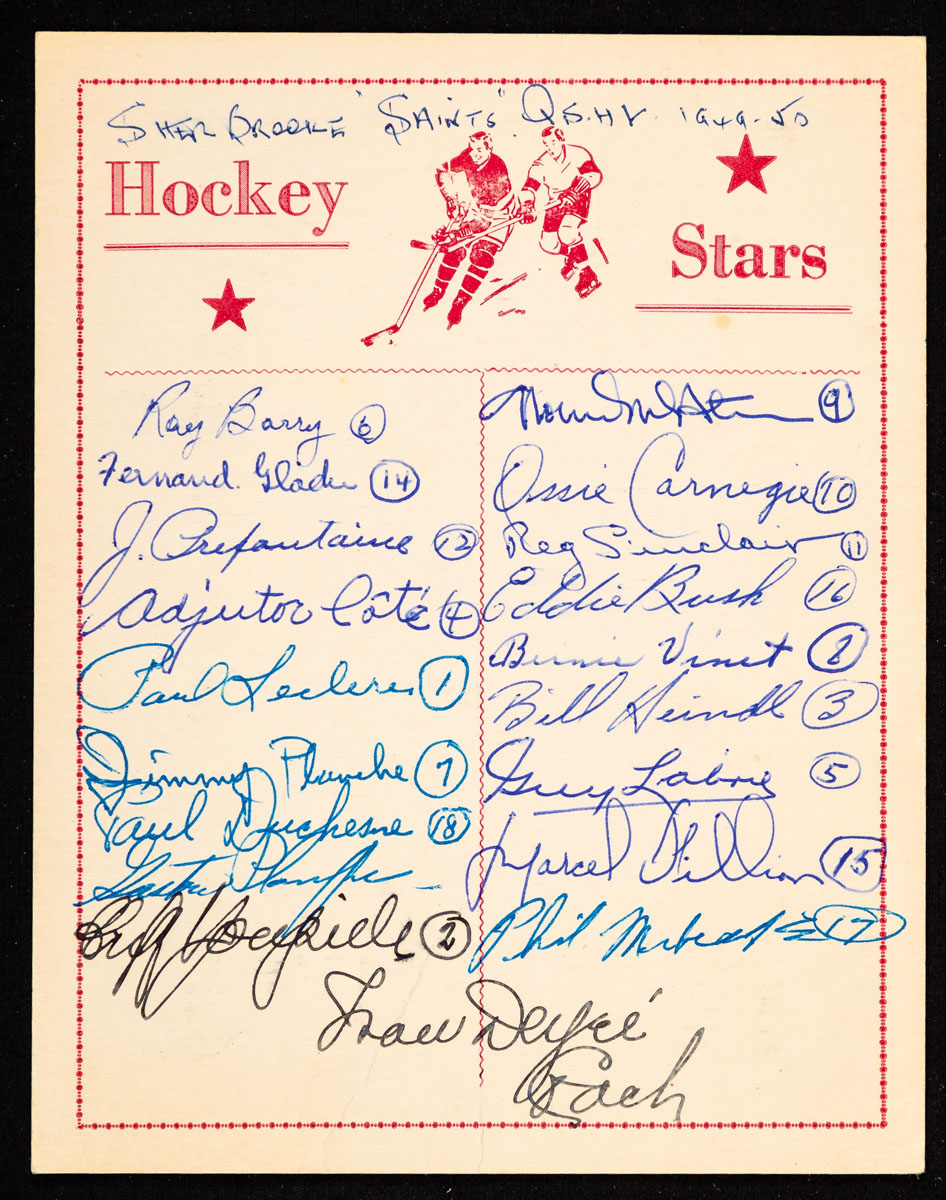 SHERBROOKE "SAINTS" Q.S.H.L. 1949-50
Hockey
Stars
Ray Barry 6
Fernand Gladu 14
J. Prefontaine 12
Adjutor Côté 4
Paul Leclerc 1
Jimmy Planche 7
Paul Duchesne 18
2
9
Ossie Carnegie 10
Reg Sinclair 11
Eddie Bush 16
Bernie Vinet 8
Bill Heindl 3
Guy Labrie 5
Marcel Fillion 15
Phil 17